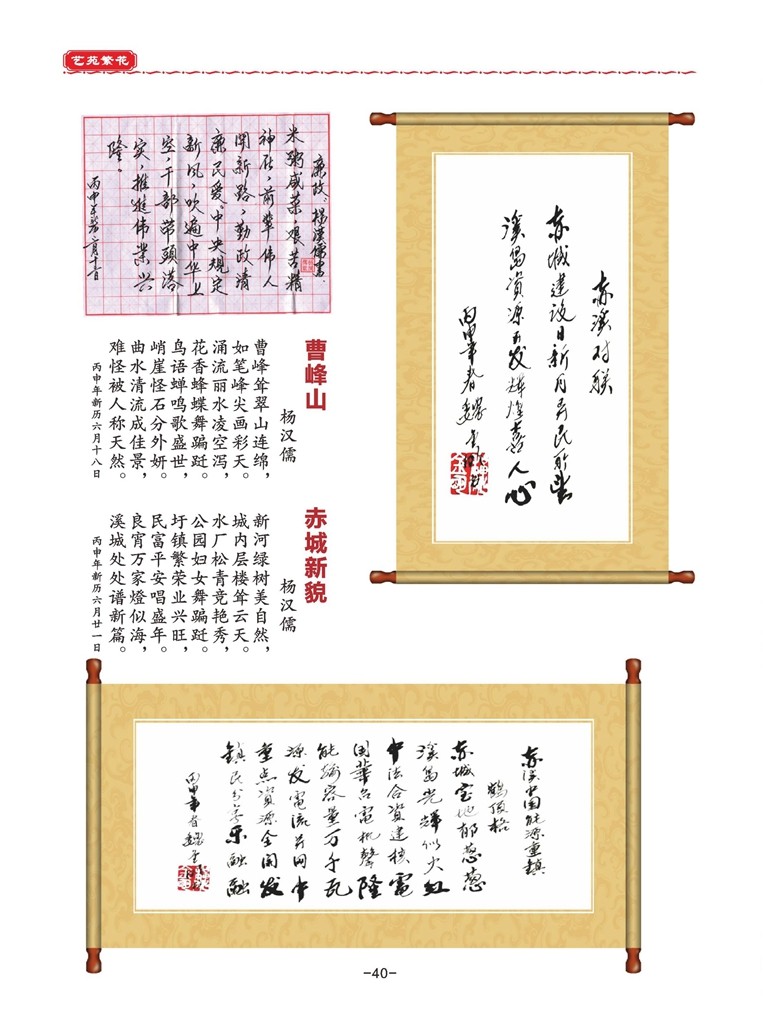 艺苑繁花
廉政 杨汉儒书
米粥咸菜，艰苦精
神在，前辈伟人
开新路，勤政清
廉民爱。中央规定
新风，吹遍中华上
空，干部带头落
实，推进伟业兴
隆。
丙申年 六月十一日
赤溪对联
赤城建设日新月异民所望
溪岛资源开发辉煌喜人心
丙申年春
曹峰山
杨汉儒
曹峰耸翠山连绵，
如笔峰尖画彩天。
涌流丽水凌空泻，
花香蜂蝶舞蹁跹。
鸟语蝉鸣歌盛世，
峭崖怪石分外妍。
曲水清流成佳景，
难怪被人称天然。
丙申年新历六月十八日
赤城新貌
杨汉儒
新河绿树美自然，
城内层楼耸云天。
水厂松青竞艳秀，
公园妇女舞蹁跹。
圩镇繁荣业兴旺，
民富平安唱盛年。
良宵万家燈似海，
溪城处处谱新篇。
丙申年新历六月廿一日
赤溪中国能源重镇
鹤顶格
赤城宝地郁葱葱
溪岛光辉似火红
中法合資建核電
国華台電机聲隆
能輸容量万千瓦
源发電流並网中
重点資源全開发
鎮民公等乐融融
丙申年春
-40-